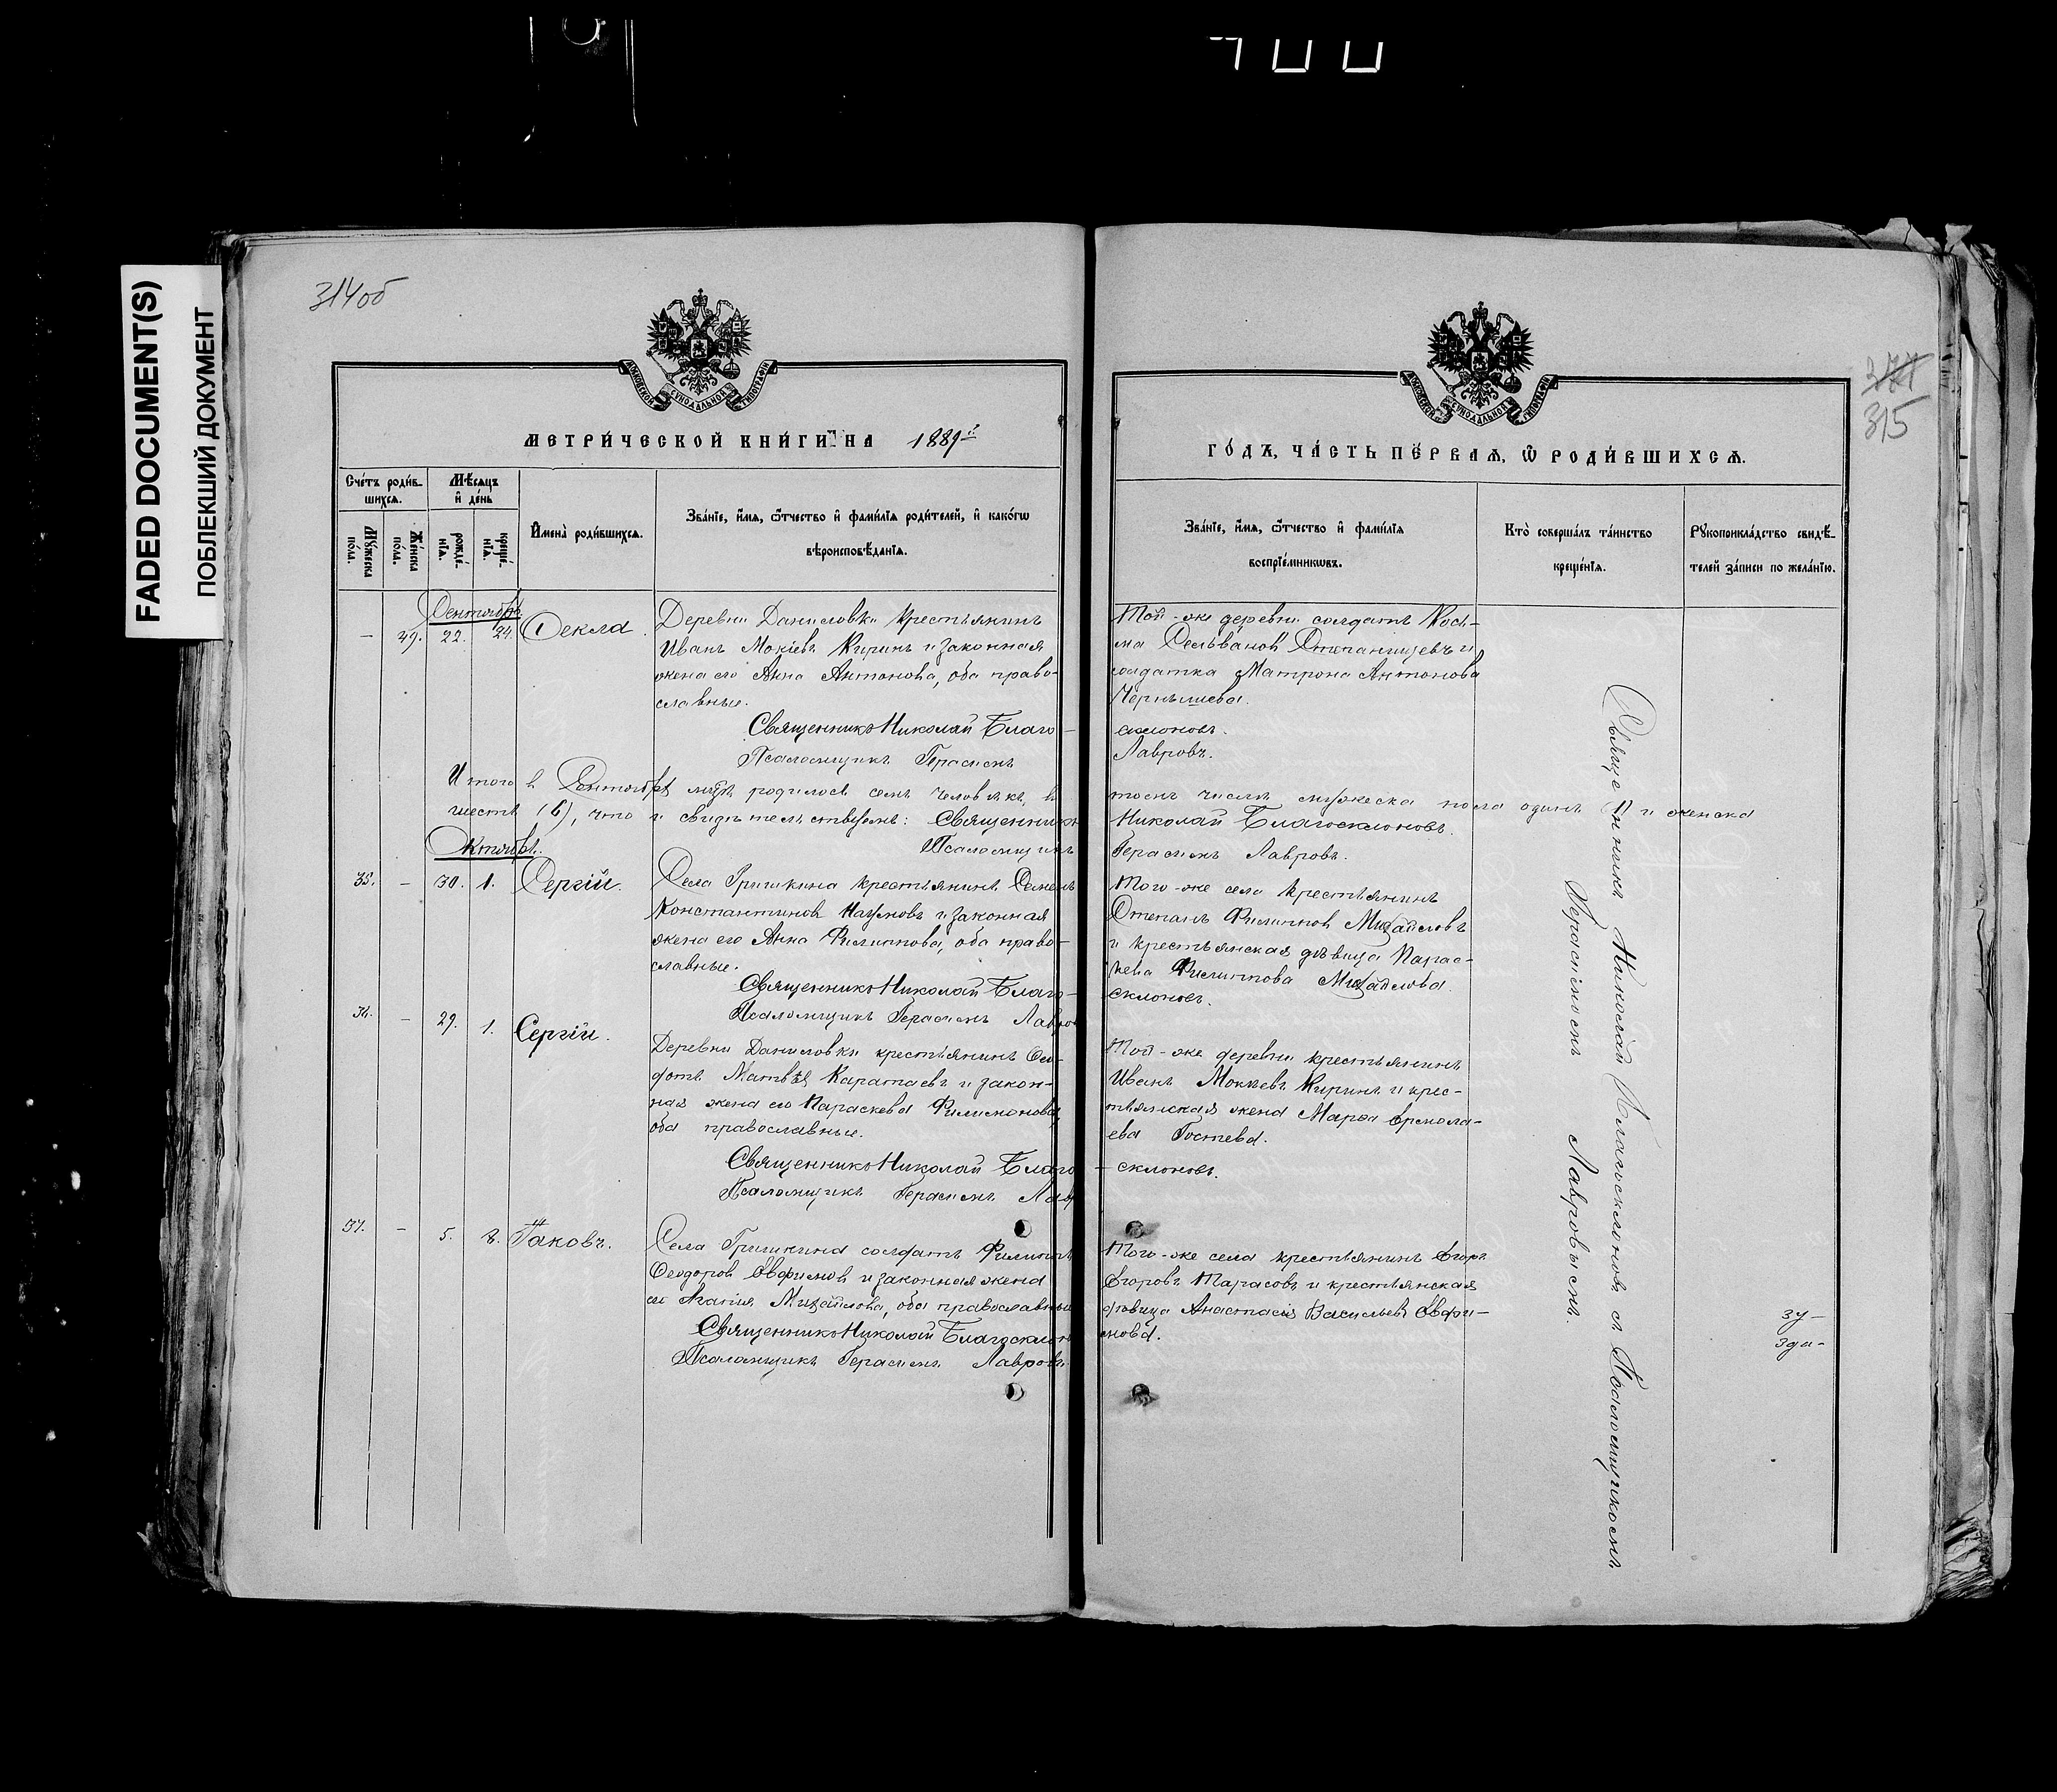 FADED DOCUMENT(S)
ПОБЛЕКШИЙ ДОКУМЕНТ
314об
МОСКОВСКОЙ СѴНОДАЛЬНОЙ ТИПОГРАФІИ
МЕТРИ́ЧЕСКОЙ КНИ́ГИ НА 1889 г.
Сче́тъ роди́в-
шихсѧ.
Мѣ́сяцъ
и҆ де́нь
Мꙋ́жеска по́ла.
Же́нска по́ла.
рожде́-нїѧ.
креще́-нїѧ.
И҆мена̀ роди́вшихсѧ.
Зва́нїе, и҆́мѧ, ѻ҆́тчество и҆ фами́лїѧ роди́телей, и҆ како́гѡ
вѣроисповѣ́данїѧ.
Сентябрь.
— 29. 22. 24. Ѳекла.
Деревни Даниловки крестьянинъ
Иванъ Мокіевъ Киринъ и законная
жена его Анна Антонова, оба право-
славные.
Священникъ Николай Благо-
Псаломщикъ Герасимъ
Итого въ Сентябрѣ мцѣ родилось семь человѣкъ, въ
шесть (6), что и свидѣтельствуемъ: Священникъ
Псаломщикъ
Октябрь.
35. — 30. 1. Сергій.
Села Гришкина крестьянинъ Семенъ
Константиновъ Наумовъ и законная
жена его Анна Филиппова, оба право-
славные.
Священникъ Николай Благо-
Псаломщикъ Герасимъ Лавров
36. — 29. 1. Сергій.
Деревни Даниловки крестьянинъ Ѳео-
дотъ Матвѣевъ Каратаевъ и закон-
ная жена его Параскева Филимонова,
оба православные.
Священникъ Николай Благо
Псаломщикъ Герасимъ Лавр
37. — 5. 8. Іаковъ.
Села Гришкина солдатъ Филиппъ
Ѳеодоров Евфимов и законная жена
его Агапія Михайлова, оба православные
Священникъ Николай Благосклонов
Псаломщикъ Герасимъ Лавровъ
315
МОСКОВСКОЙ СѴНОДАЛЬНОЙ ТИПОГРАФІИ
ГО́ДЪ, ЧА́СТЬ ПЕ́РВАѦ, Ѡ҆ РОДИ́ВШИХСѦ.
Зва́нїе, и҆́мѧ, ѻ҆́тчество и҆ фами́лїѧ
воспрїе́мникѡвъ.
Кто̀ соверша́лъ та́инство
креще́нїѧ.
Рꙋкоприкла́дство свидѣ́-
телей за́писи по жела́нїю.
Той-же деревни солдатъ Кось-
ма Сельванов Степанищевъ и
солдатка Матрона Антонова
Чернышева.
склоновъ.
Лавровъ.
томъ числѣ мужеска пола одинъ и женска
Николай Благосклоновъ.
Герасимъ Лавровъ.
Того-же села крестьянинъ
Степанъ Филиппов Михайловъ
и крестьянская дѣвица Парас-
кева Филиппова Михайлова.
склоновъ.
Той-же деревни крестьянинъ
Иванъ Мокіевъ Киринъ и крес-
тьянская жена Марѳа Ермола-
ева Гостева.
склоновъ.
Того-же села крестьянинъ Егоръ
Егоровъ Тарасовъ и крестьянская
дѣвица Анастасія Васильева Евфи-
мова.
Священникъ Николай Благосклоновъ съ Псаломщикомъ
Герасимомъ Лавровымъ.